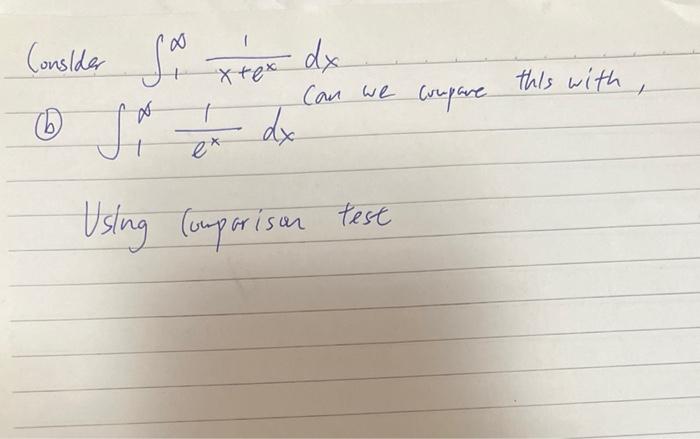 Consider ∫₁^∞ 1/(x+e^x) dx
Can we compare this with,
(b) ∫₁^∞ 1/e^x dx
Using Comparison test